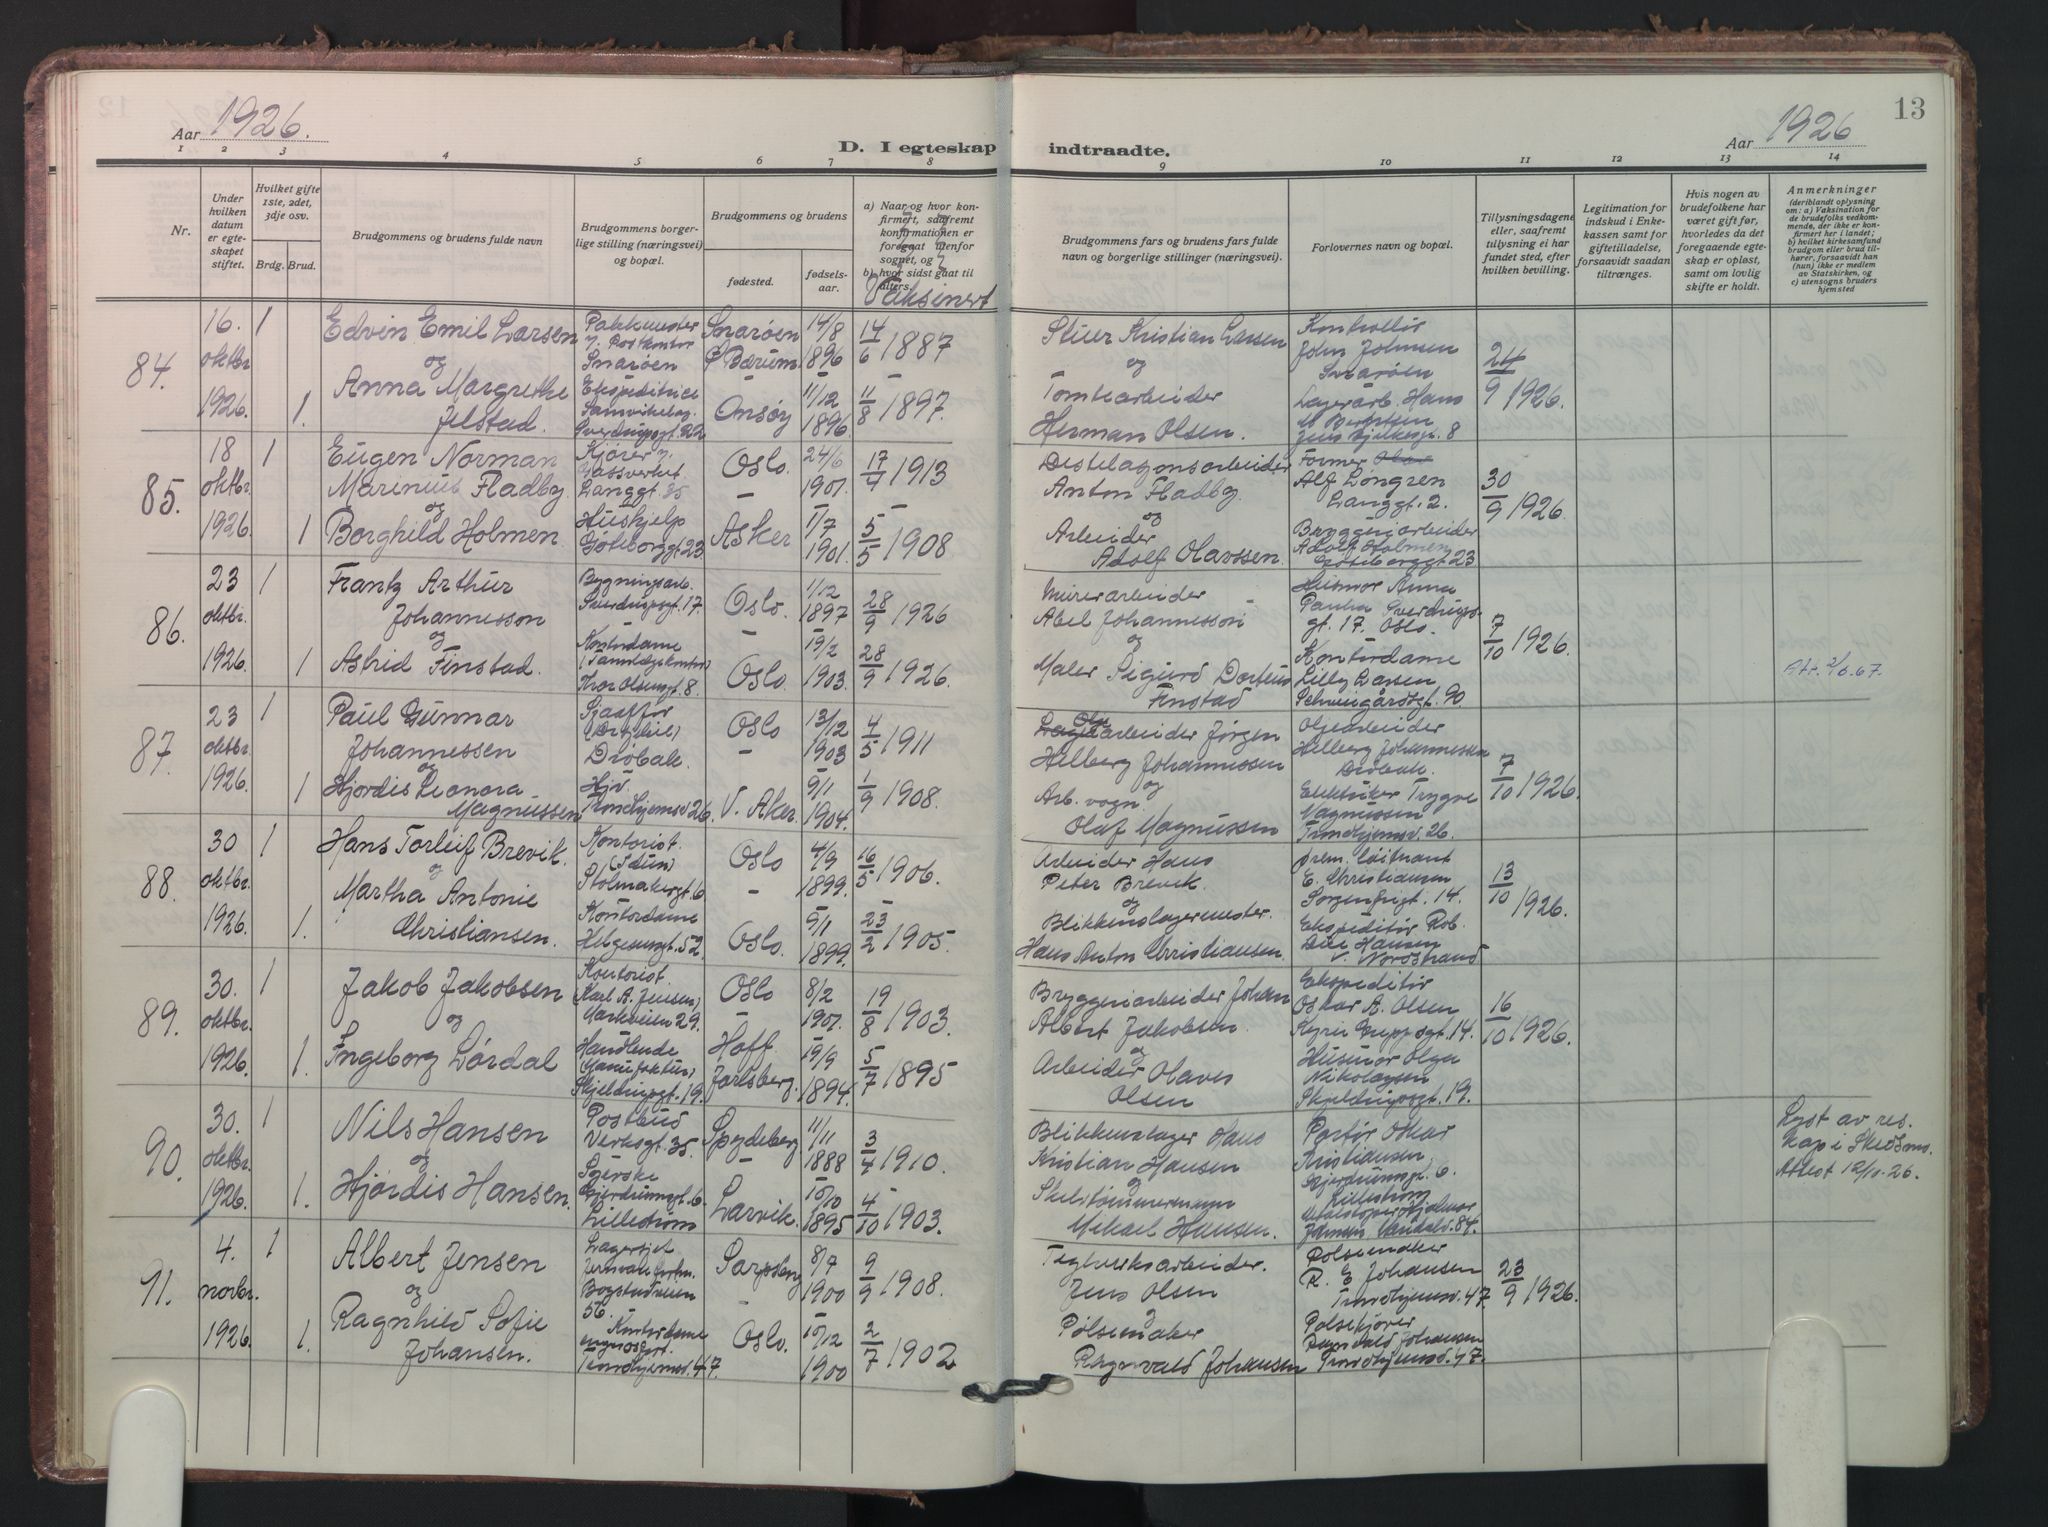 Aar 1926.
D. I egteskap indtraadte.
Aar 1926
13
1 2 3 4 5 6 7 8 9 10 11 12 13 14
Nr.
Under hvilken datum er egteskapet stiftet.
Hvilket gifte 1ste, 2det, 3dje osv.
Brdg. Brud.
Brudgommens og brudens fulde navn
Brudgommens borgerlige stilling (næringsvei) og bopæl.
Brudgommens og brudens
fødested.
fødselsaar.
a) Naar og hvor konfirmert, saafremt konfirmationen er foregaat utenfor sognet, og
b) hvor sidst gaat til alters.
Vaksinert
Brudgommens fars og brudens fars fulde navn og borgerlige stillinger (næringsvei).
Forlovernes navn og bopæl.
Tillysningsdagene eller, saafremt tillysning ei har fundet sted, efter hvilken bevilling.
Legitimation for indskud i Enkekassen samt for giftetilladelse, forsaavidt saadan tiltrænges.
Hvis nogen av brudefolkene har været gift før, hvorledes da det foregaaende egteskap er opløst, samt om lovlig skifte er holdt.
Anmerkninger
(deriblandt oplysning om: a) Vaksination for de brudefolks vedkommende, der ikke er konfirmert her i landet; b) hvilket kirkesamfund brudgom eller brud tilhører, forsaavidt han (hun) ikke er medlem av Statskirken, og c) utensogns bruders hjemsted
84. 16. oktbr. 1926. 1
Edvin Emil Larsen
og
Anna Margrethe
Jelstad.
1.
Pakkmester
v. Postkontor
Snarøen
Ekspeditrice
Samvirkelag.
Sverdrupsgt. 22
Snarøen
p Bærum.
Onsøy
14/8 1896
11/12 1896.
14/6 1887
11/8 1897.
Stuer Kristian Larsen
og
Tomtearbeider
Herman Olsen.
Kontrollør
John Johnsen
Snarøen
Lagerarb. Hans
Jens Bjelkesgt. 8
24/9 1926.
85. 18 oktbr. 1926. 1
Eugen Norman
Marinius Fladby
og
Borghild Holmen.
1
Kjører v.
Gassverket
Langgt. 35
Huskjelp
Gøteborggt 23
Oslo.
Asker
24/6 1901.
11/7 1901.
17/4 1913
5/5 1908
Anton Fladby.
og
Arbeider
Adolf Olavssen.
Former
Alf Longren
Langgt. 2.
Bryggeriarbeider
Adolf Holmen
Gøteborggt 23
30/9 1926.
86. 23 oktbr. 1926. 1
Frantz Arthur
Johannesson
og
Astrid Finstad.
1
Bygningsarb.
Sverdrupsgt. 17.
Kontordame
(Tannlægekontor)
Thor Olsensgt. 8.
Oslo.
Oslo.
1/12 1897
19/2 1903.
28/9 1926
28/9 1926.
Murerarbeider
Abel Johannesson
og
Maler Sigurd Dorteus
Finstad
Husmor Anna
Paulia Sverdrups
gt. 17. Oslo.
Kontordame
Lilly Larsen
Schweigårdsgt. 90.
7/10 1926.
87. 23 oktbr. 1926. 1
Paul Gunnar
Johannessen
og
Hjordis Leonora
Magnussen
1
Sjaaffør
Drøbak.
Hjv.
Trondhjemsv. 26.
Oslo
V. Aker.
13/12 1903
9/1 1904.
4/5 1911
1/9 1908.
Olje
arbeider Jørgen
Hilberg Johannessen
og
Arb. vogn.
Olaf Magnussen
Oljearbeider
Hilberg Johannessen
Drøbak.
Elektriker Trygve
Magnussen
Trondhjemsv. 26.
7/10 1926.
88. 30 oktbr. 1926. 1
Hans Torleif Brevik.
og
Martha Antonie
Christiansen.
1.
Kontorist.
(Idun)
Stolmakergt. 6
Kontordame
Helgesensgt. 52.
Oslo
Oslo.
4/9 1899.
9/11 1899.
16/5 1906.
23/2 1905.
Arbeider Hans
Peter Brevik.
og
Blikkenslagermester.
Hans Anton Christiansen.
Prem. løitnant
E. Christiansen
Sorgenfrigt. 14.
Ekspeditør Rob.
Hansen
v. Nordstrand
13/10 1926.
89. 30. oktbr. 1926. 1
Jakob Jakobsen
og
Ingeborg Lørdal
1.
Kontorist
(Karl A. Jensen)
Markveien 29.
Handlende
(Manufaktur)
Skjeldrupsgt. 19.
Oslo
Hoff
Jarlsberg.
8/2 1901.
19/9 1894.
19/8 1903.
5/7 1895
Bryggeriarbeider Johan
Albert Jakobsen.
og
Arbeider Olaves
Olsen
Ekspeditør
Oskar A. Olsen
Kyrre Greppsgt. 14.
Husmor Olga
Nikolaysen
Skjeldrupsgt. 19.
16/10 1926.
90. 30. oktbr. 1926. 1
Nils Hansen
og
Hjørdis Hansen.
1.
Postbud
Verksgt. 35.
Syerske
Gjerdrumsgt. 6
Lillestrøm
Spydeberg
Larvik.
11/11 1888
10/10 1895
3/4 1910.
4/10 1903.
Blikkenslager Hans
Kristian Hansen
og
Skibstømmermann
Mikael Hansen.
Portør Oskar
Kristiansen,
Gjerdrumsgt. 6.
Lillestrøm
Metalstøper Hjalmar
Johnsen Vardalsv. 84.
Lyst av res.
Kap i Skedsmo.
Attest 12/11.26.
91. 4. novbr. 1926. 1
Albert Jensen
og
Ragnhild Sofie
Johansen.
1.
Lagersjef
Jernvareforn.
Bogstadveien
56.
Kontordame
Trondhjemsv. 47.
Sarpsborg
Oslo.
8/7 1900
10/12 1900
9/9 1908.
2/7 1902
Teglverksarbeider.
Jens Olsen
og
Pølsemaker
Ragnvald Johansen
Pølsemaker
R. E Johansen
Trondhjemsv. 47.
Pølsekjører
Ragnvald Johansen
Trondhjemsv. 47.
23/9 1926.